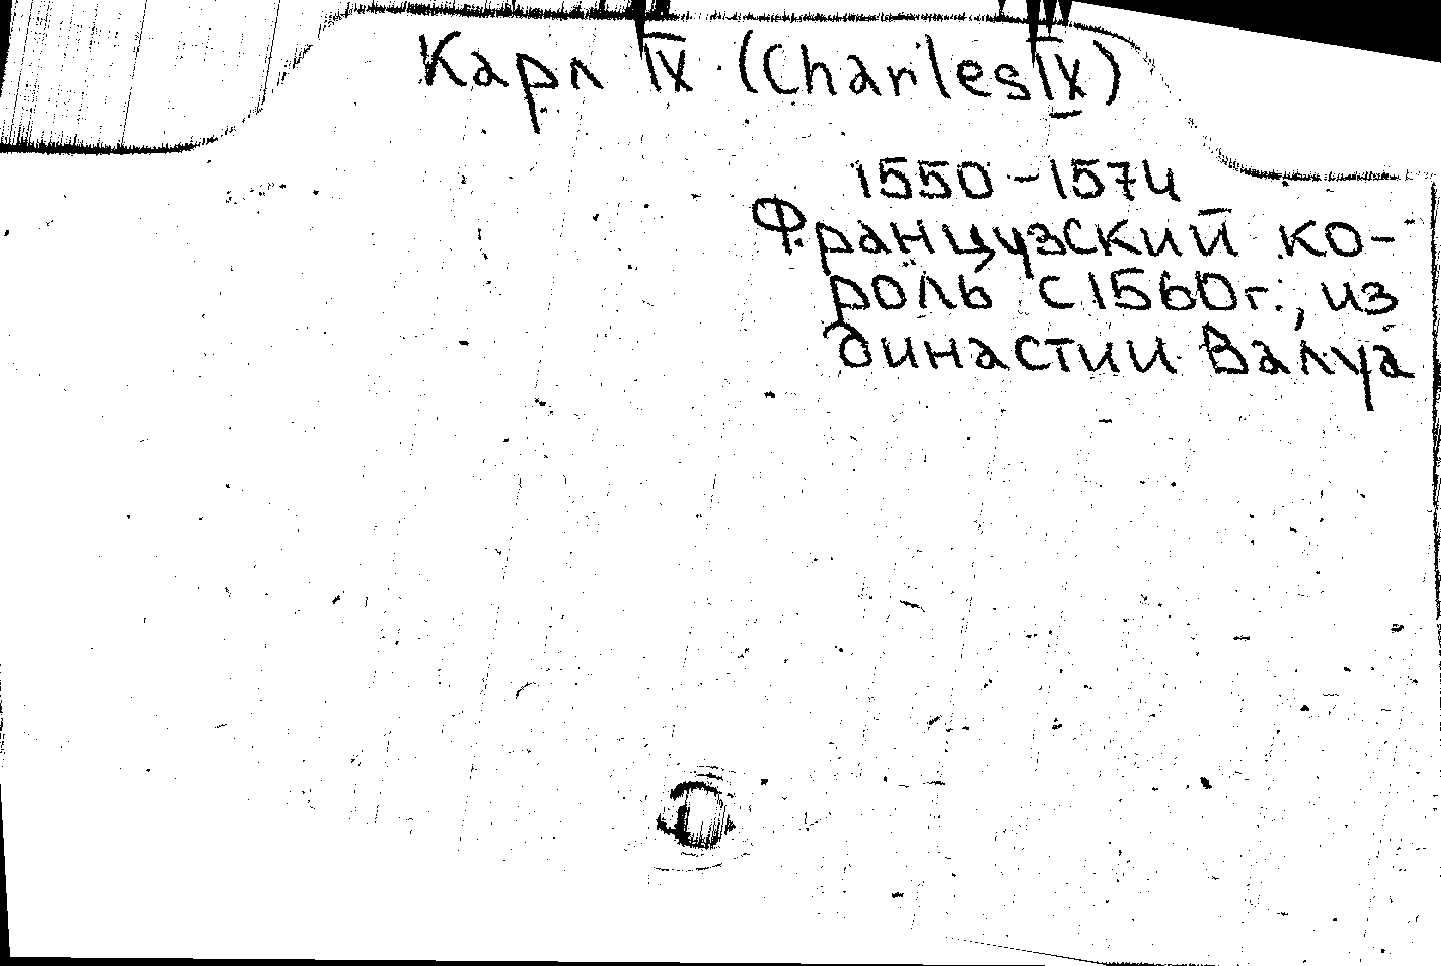 Карл IX (Charles IX)
1550-1574
Французский ко-
роль с 1560г., из
династии Валуа